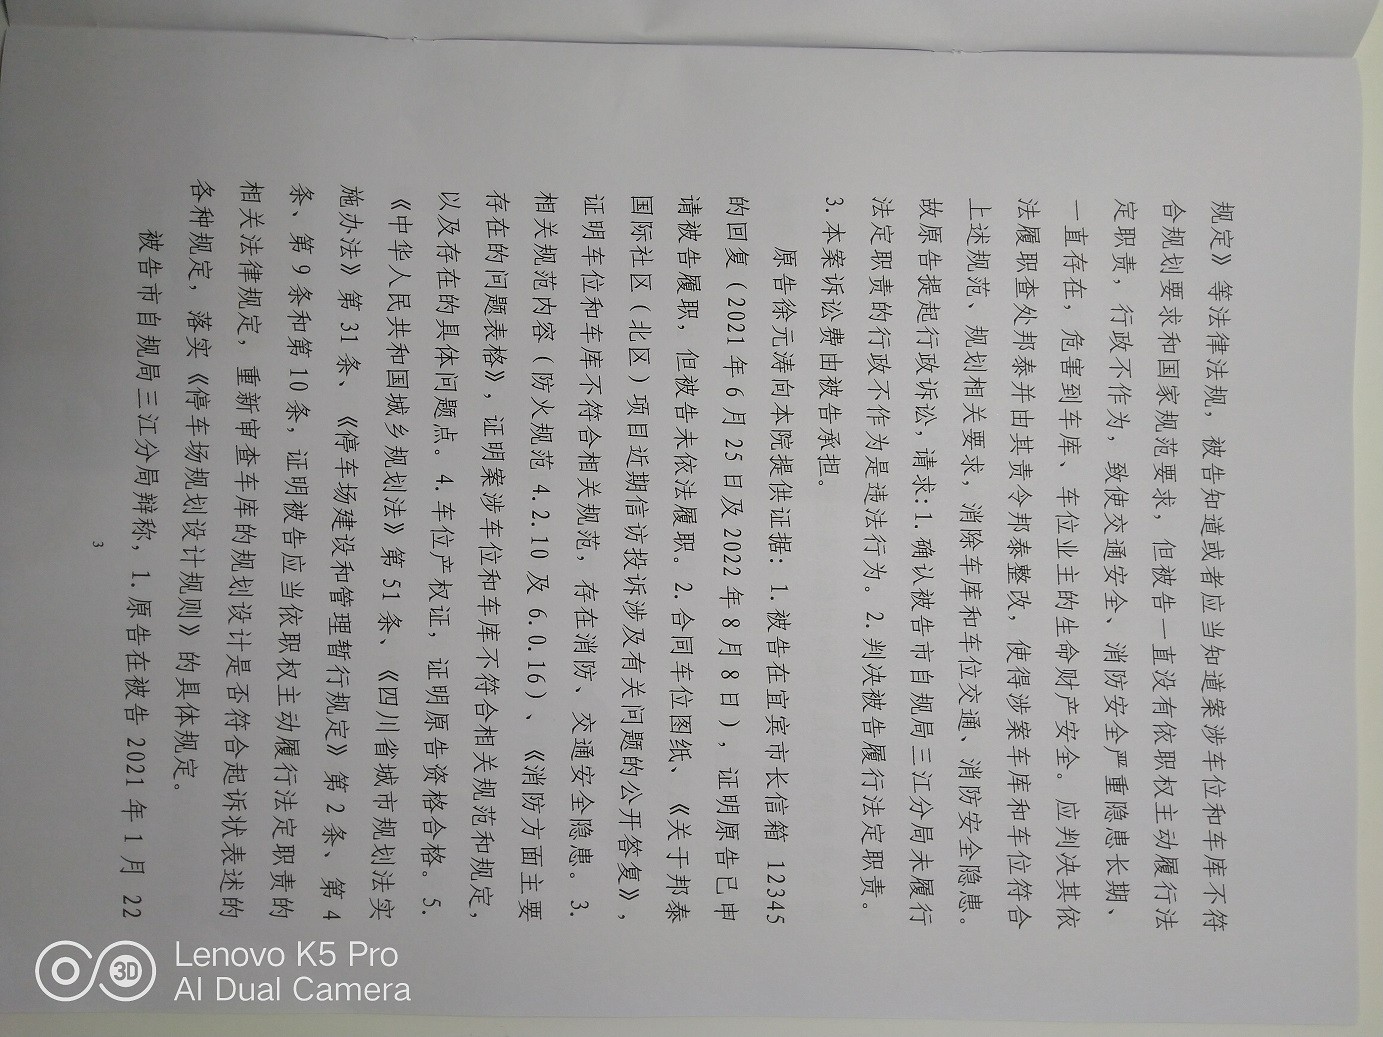 规定》等法律法规，被告知道或者应当知道案涉车位和车库不符
合规划要求和国家规范要求，但被告一直没有依职权主动履行法
定职责，行政不作为，致使交通安全、消防安全严重隐患长期、
一直存在，危害到车库、车位业主的生命财产安全。应判决其依
法履职查处邦泰并由其责令邦泰整改，使得涉案车库和车位符合
上述规范、规划相关要求，消除车库和车位交通、消防安全隐患。
故原告提起行政诉讼，请求:1.确认被告市自规局三江分局未履行
法定职责的行政不作为是违法行为。2.判决被告履行法定职责。
3.本案诉讼费由被告承担。
原告徐元涛向本院提供证据：1.被告在宜宾市长信箱 12345
的回复（2021 年 6 月 25 日及 2022 年 8 月 8 日），证明原告已申
请被告履职，但被告未依法履职。2.合同车位图纸、《关于邦泰
国际社区（北区）项目近期信访投诉涉及有关问题的公开答复》，
证明车位和车库不符合相关规范，存在消防、交通安全隐患。3.
相关规范内容（防火规范 4.2.10 及 6.0.16）、《消防方面主要
存在的问题表格》，证明案涉车位和车库不符合相关规范和规定，
以及存在的具体问题点。4.车位产权证，证明原告资格合格。5.
《中华人民共和国城乡规划法》第 51 条、《四川省城市规划法实
施办法》第 31 条、《停车场建设和管理暂行规定》第 2 条、第 4
条、第 9 条和第 10 条，证明被告应当依职权主动履行法定职责的
相关法律规定，重新审查车库的规划设计是否符合起诉状表述的
各种规定，落实《停车场规划设计规则》的具体规定。
被告市自规局三江分局辩称，1.原告在被告 2021 年 1 月 22
3
Lenovo K5 Pro
AI Dual Camera
3D